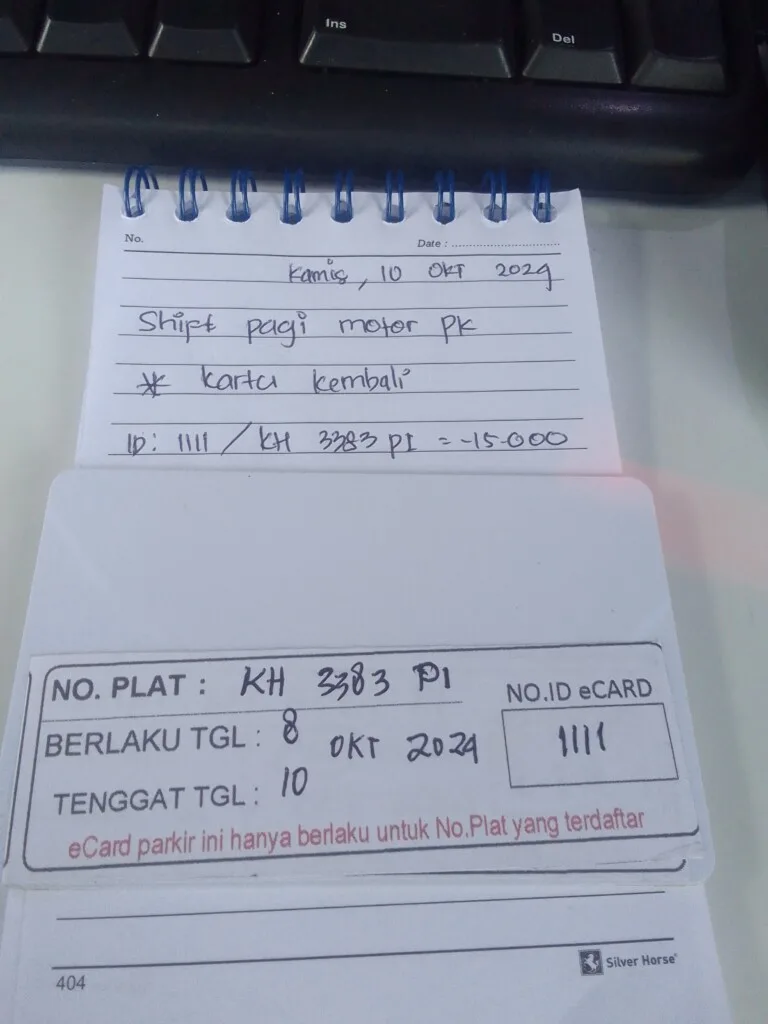 Ins
Del
No.
Date : ................................
Kamis, 10 OKT 2024
Shift pagi motor PK
* kartu kembali
ID: 1111 / KH 3383 PI = -15.000
NO. PLAT : KH 3383 PI
NO.ID eCARD
1111
BERLAKU TGL : 8 OKT 2024
TENGGAT TGL : 10
eCard parkir ini hanya berlaku untuk No.Plat yang terdaftar
404
Silver Horse